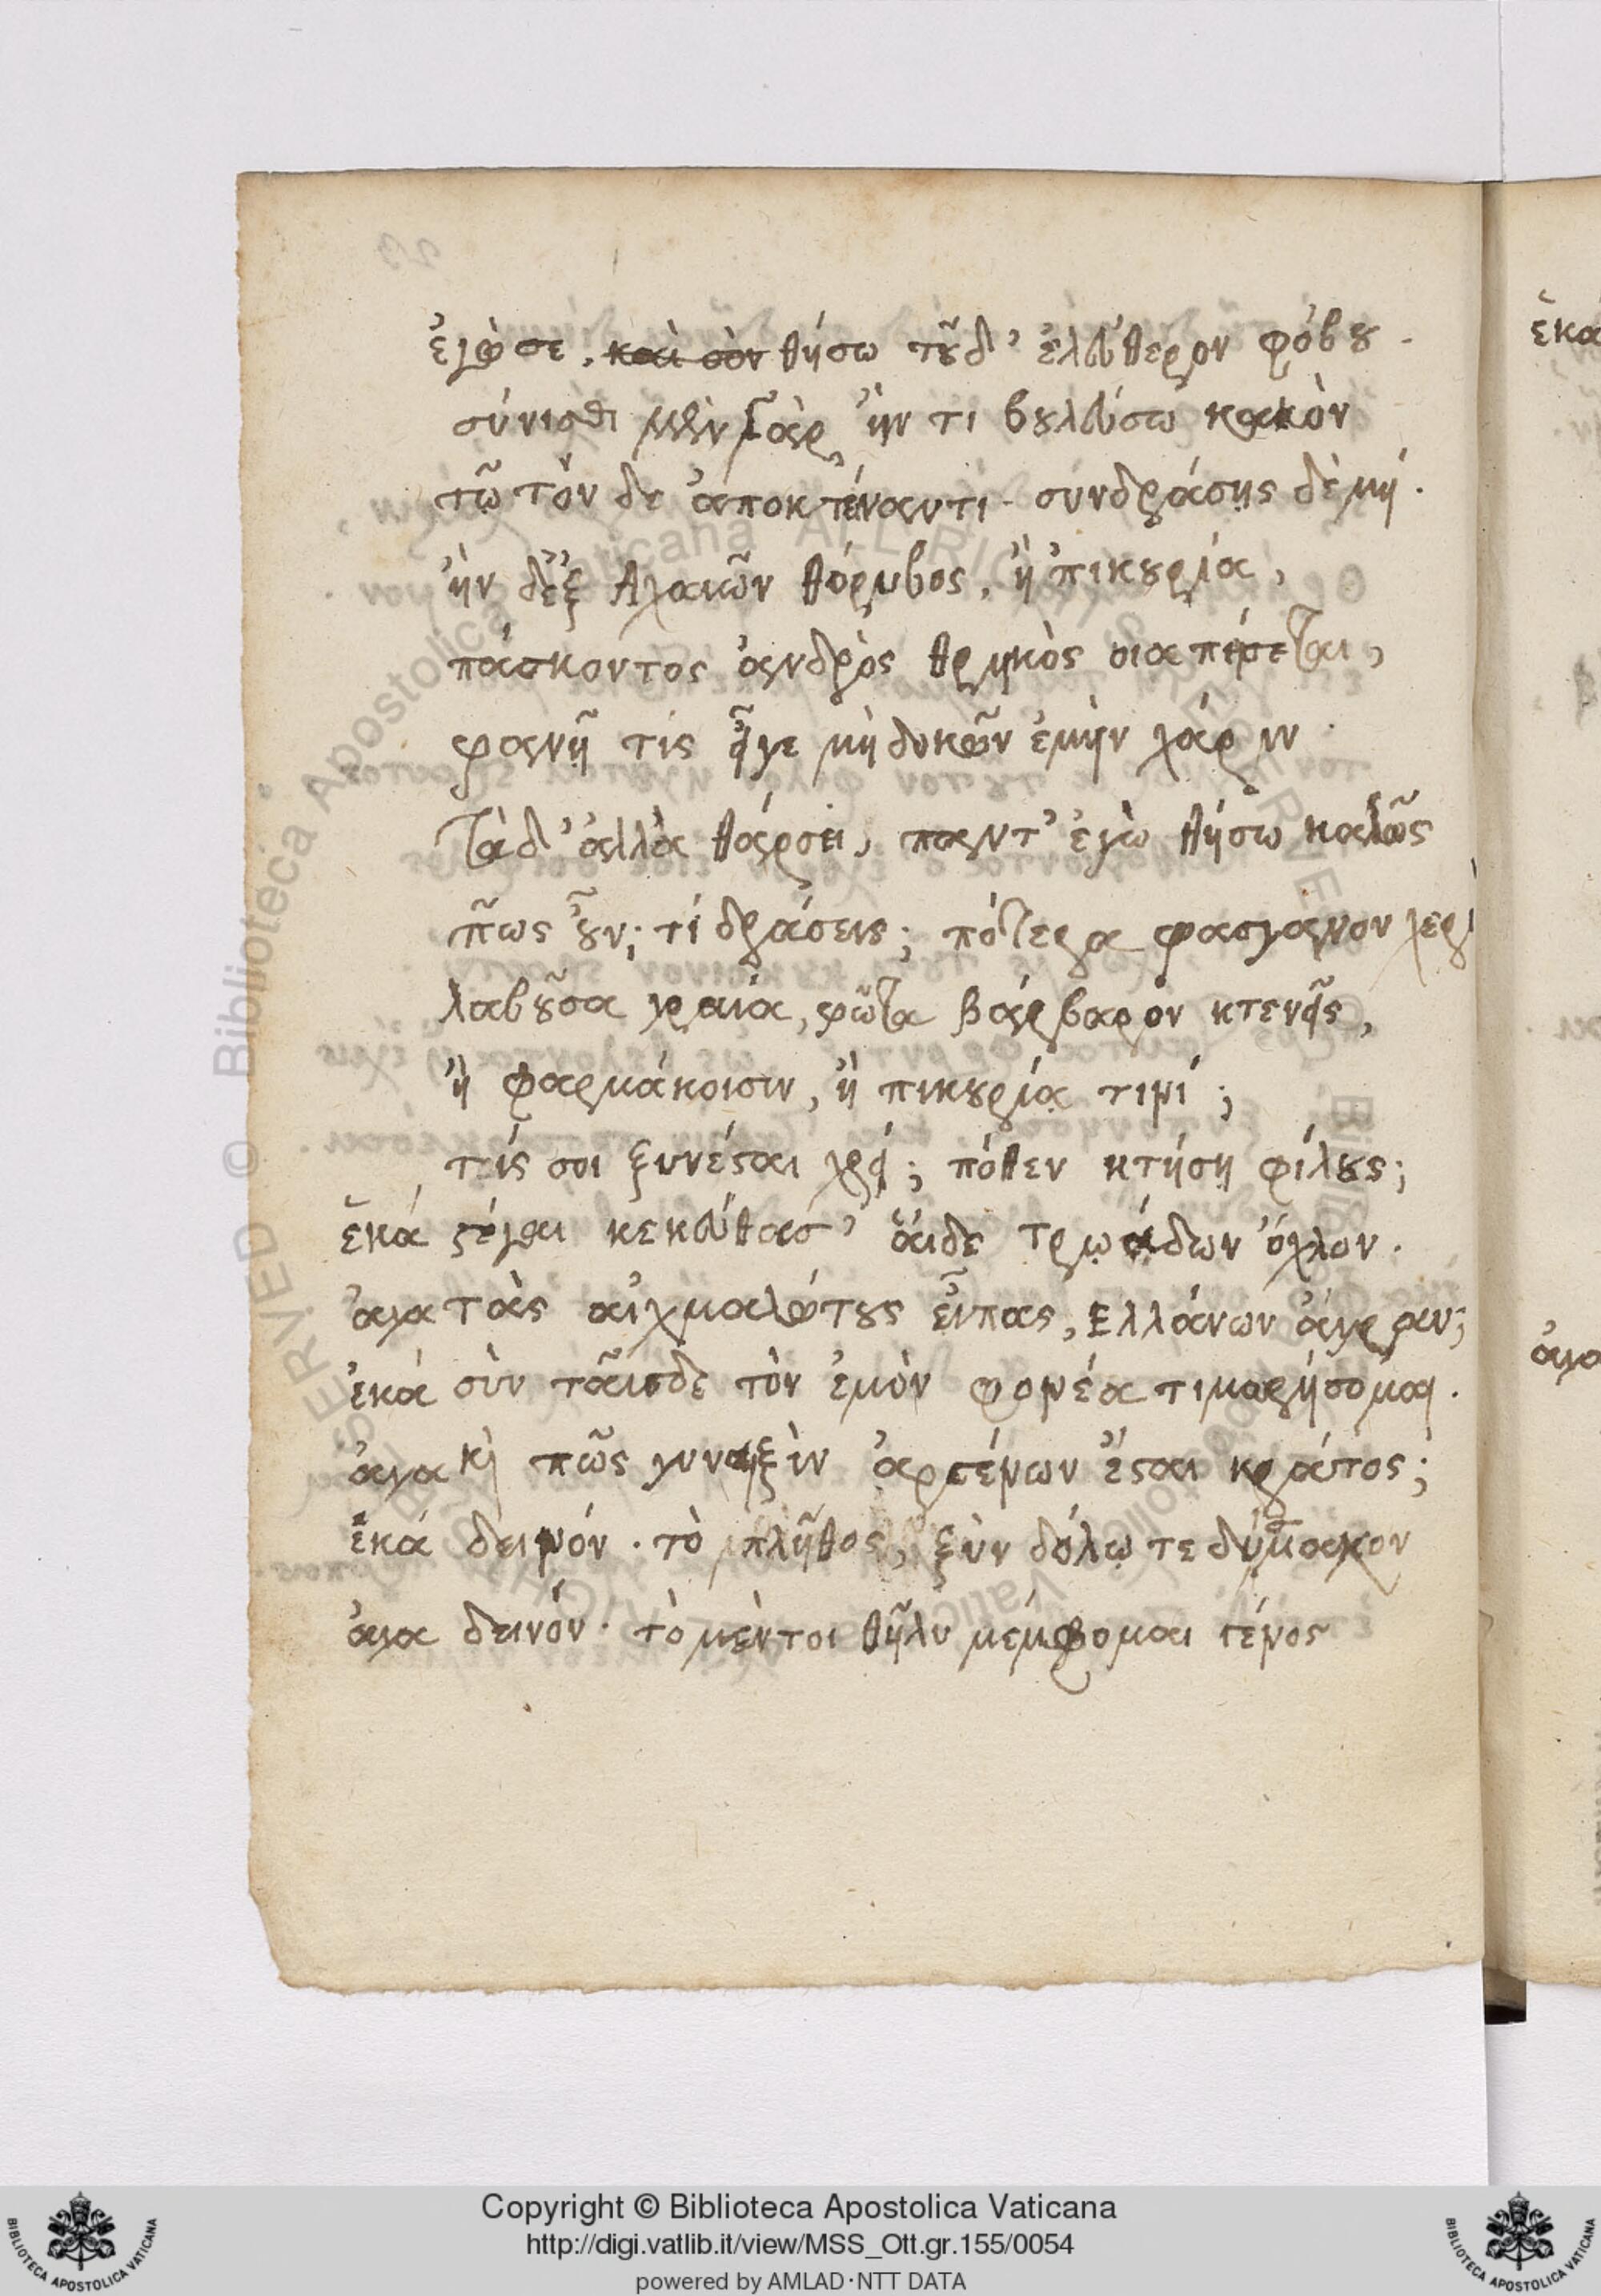 ἐγώ σε, καὶ σὸν θήσω τοῦδ' ἐλεύθερον φόβου.
σύνισθι μὲν γὰρ ἤν τι βουλεύσω κακὸν
τῷ τόν δε ἀποκτείναντι – συνδράσῃς δὲ μή.
ἢν δ' ἐξ Ἀχαιῶν θόρυβος, ἢ 'πικουρία,
πάσχοντος ἀνδρὸς θρηκὸς οἷα πείσεται,
φανῇ τις εἶργε μὴ δοκῶν ἐμὴν χάριν.
τὰ δ' ἄλλα θάρσει, πάντ' ἐγὼ θήσω καλῶς
πῶς οὖν; τί δράσεις; πότερα φάσγανον χερὶ
λαβοῦσα γραία, φῶτα βάρβαρον κτενεῖς,
ἢ φαρμάκοισιν, ἢ 'πικουρίᾳ τινί;
τίς σοι ξυνέσται χείρ; πόθεν κτήσῃ φίλους;
ἑκά στέγαι κεκεύθασ' αἵδε τρῳάδων ὄχλον.
ἀγα τὰς αἰχμαλώτους εἶπας, Ἑλλάνων ἄγραν;
ἑκά σὺν ταῖσδε τὸν ἐμὸν φονέα τιμωρήσομαι.
ἀγα καὶ πῶς γυναιξὶν ἀρσένων ἔσται κράτος;
ἑκά δεινόν· τὸ πλῆθος, ξὺν δόλῳ τε δύσμαχον
ἀγα δεινόν· τὸ μέντοι θῆλυ μέμφομαι γένος
ἑκά
ἀγα
Copyright © Biblioteca Apostolica Vaticana
http://digi.vatlib.it/view/MSS_Ott.gr.155/0054
powered by AMLAD·NTT DATA
BIBLIOTECA APOSTOLICA VATICANA
BIBLIOTECA APOSTOLICA VATICANA